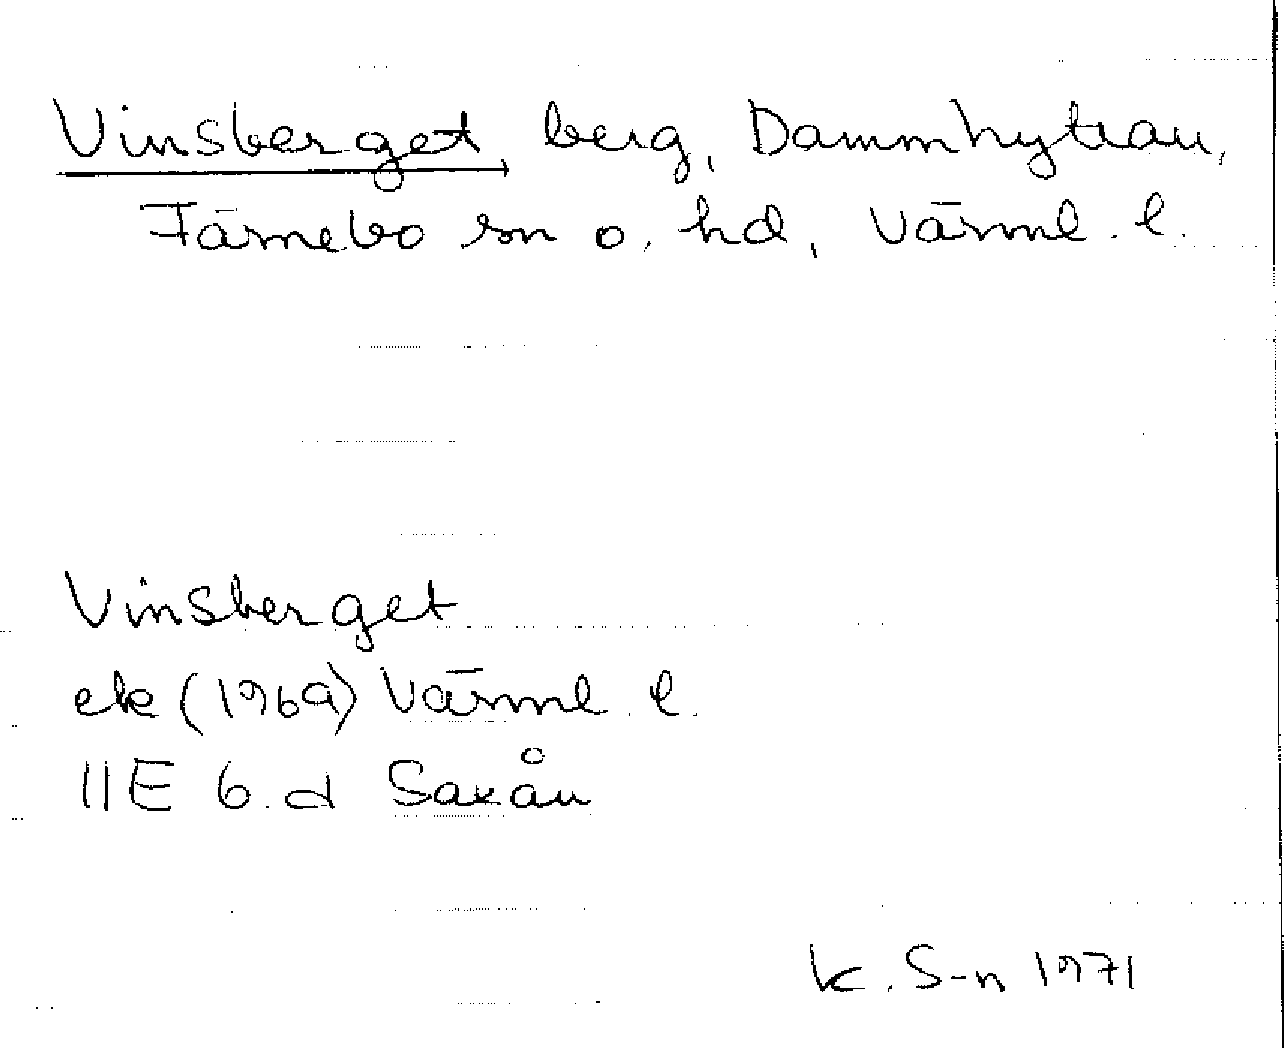 Vinsberget berg, Dammhyttan,
Färnebo sn o. hd, Värml. l.
Vinsberget
ek (1969) Värml. l.
11E 6.d Saxån
K. S-n 1971